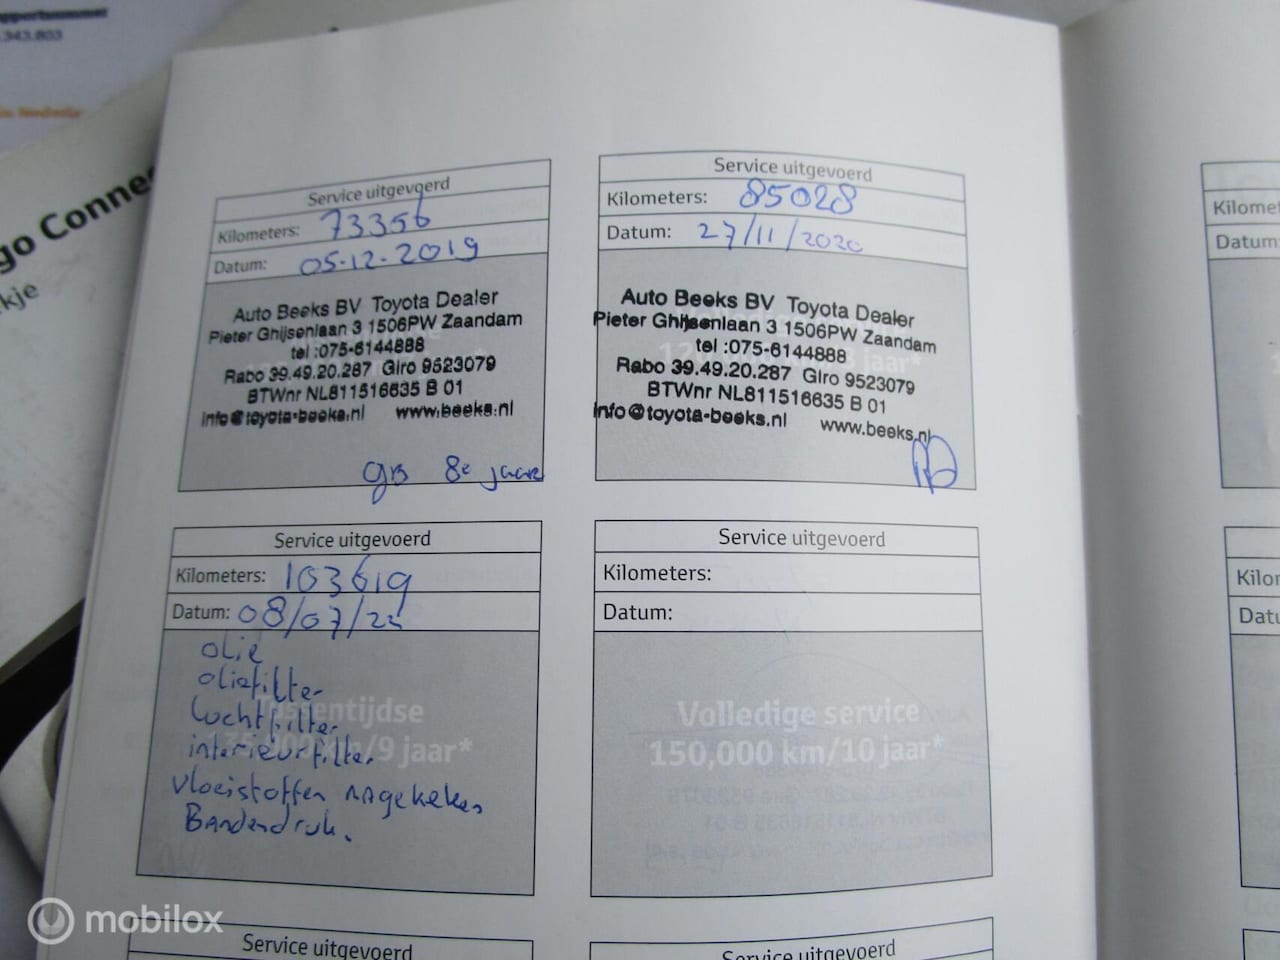 .343.803
go Connec
kje
Service uitgevoerd
Kilometers: 73356
Datum: 05-12-2019
Auto Beeks BV Toyota Dealer
Pieter Ghijsenlaan 3 1506PW Zaandam
tel :075-6144888
Rabo 39.49.20.287 Giro 9523079
BTWnr NL811516635 B 01
info@toyota-beeks.nl www.beeks.nl
8e jaars
Service uitgevoerd
Kilometers: 85028
Datum: 27/11/2020
Auto Beeks BV Toyota Dealer
Pieter Ghijsenlaan 3 1506PW Zaandam
tel :075-6144888
Rabo 39.49.20.287 Giro 9523079
BTWnr NL811516635 B 01
info@toyota-beeks.nl www.beeks.nl
Service uitgevoerd
Kilometers: 103619
Datum: 08/07/22
olie
oliefilter
Luchtfilter
interieurfilter
vloeistoffen nagekeken
Bandendruk.
Tussentijdse
135,000 km/9 jaar*
Service uitgevoerd
Kilometers:
Datum:
Volledige service
150,000 km/10 jaar*
Service uitgevoerd
Service uitgevoerd
Kilomet
Datum:
Kilor
Datu
mobilox